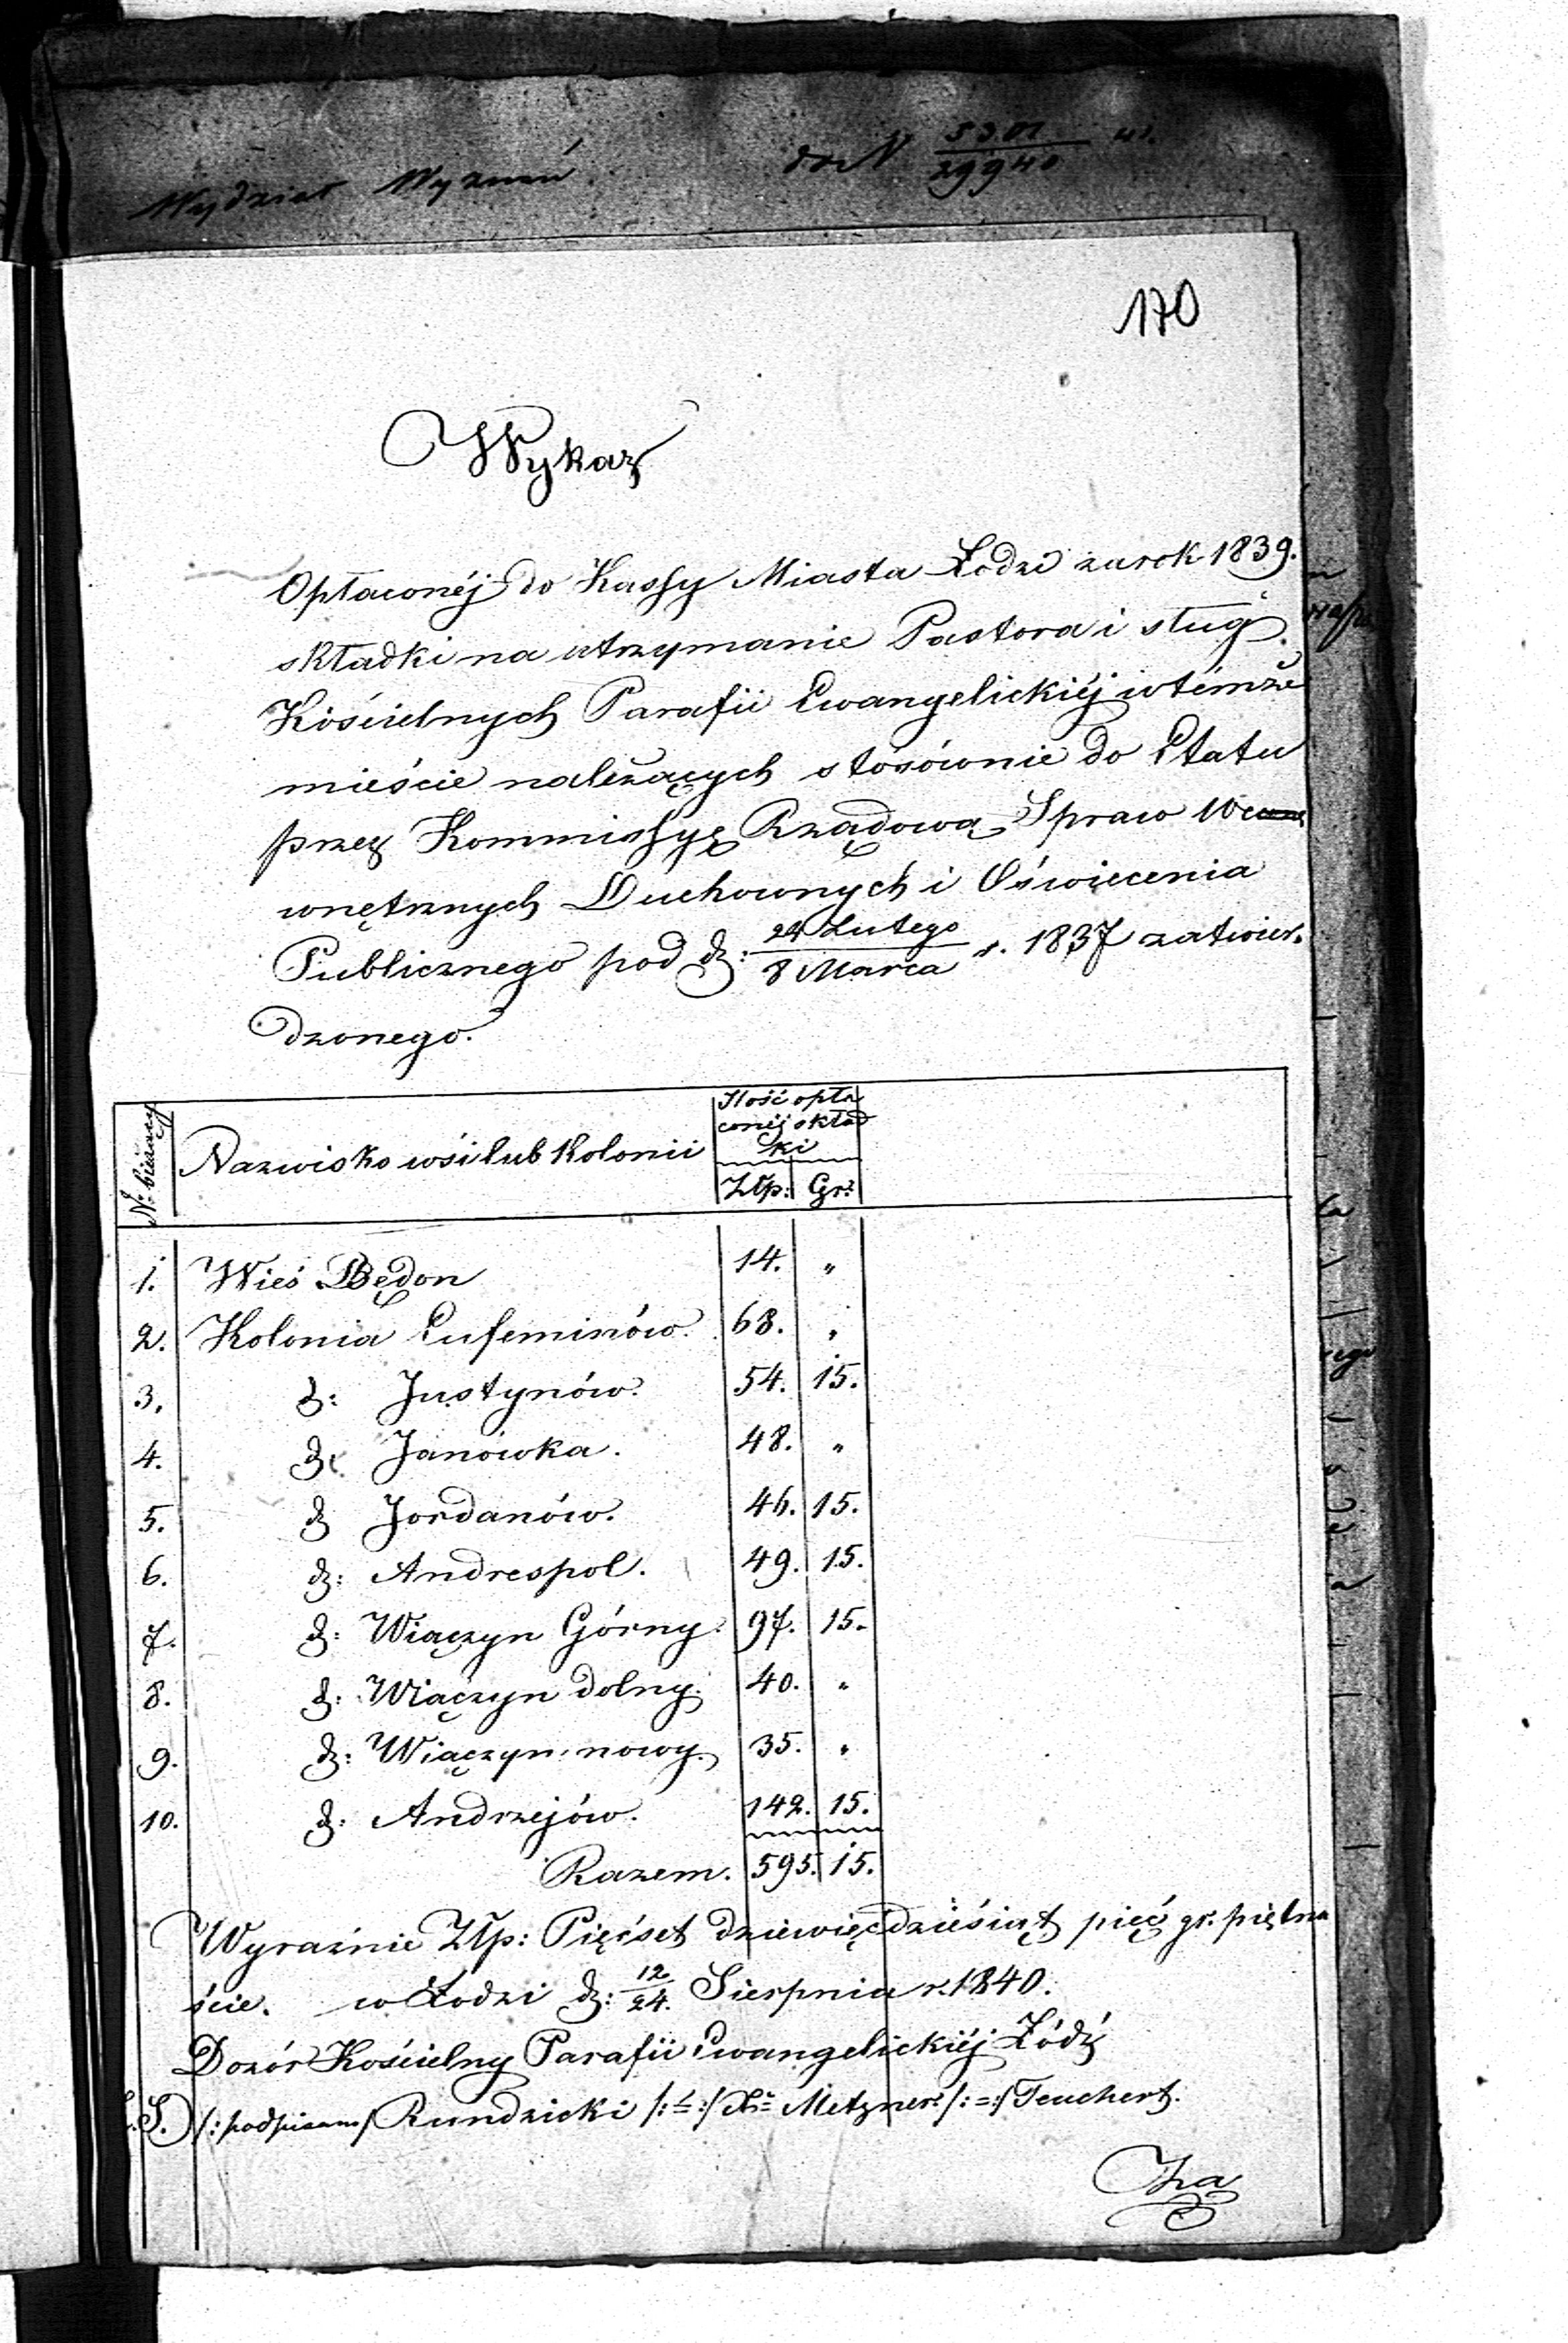 Wydział Wyznań do N 5301/29940
170
Wykaz
Opłaconéj do Kassy Miasta Łodzi za rok 1839.
składki na utrzymanie Pastora i sług
Kościelnych Parafii Ewangelickiéj w témże
mieście należących stósównie do Etatu
przez Kommissyę Rządową Spraw We
wnętrznych Duchownych i Oświecenia
Publicznego pod d: 24 Lutego/8 Marca r. 1837 zatwier-
dzonego.
No bieżący | Nazwisko wsi lub Kolonii | Ilość opła
conéj skład
ki
Złp: | Gr:
1. Wieś Będon 14. "
2. Kolonia Eufeminów. 68. "
3. d: Justynów. 54. 15.
4. d: Janówka. 48. "
5. d Jordanów. 46. 15.
6. d: Andrespol. 49. 15.
7. d: Wiączyn Górny. 97. 15.
8. d: Wiączyn dolny. 40. "
9. d: Wiączyn nowy. 35. "
10. d: Andrzejów. 142. 15.
Razem. 595. 15.
Wyraźnie Złp: Pięćset dziewięćdziesiąt pięć gr. piętna
ście. w Łodzi d: 12/24. Sierpnia r. 1840.
Dozór Kościelny Parafii Ewangelickiéj Łódź
L.S. /: podpisano / Rundzicki /:=:/ Metzner /:=:/ Teuchert.
Za